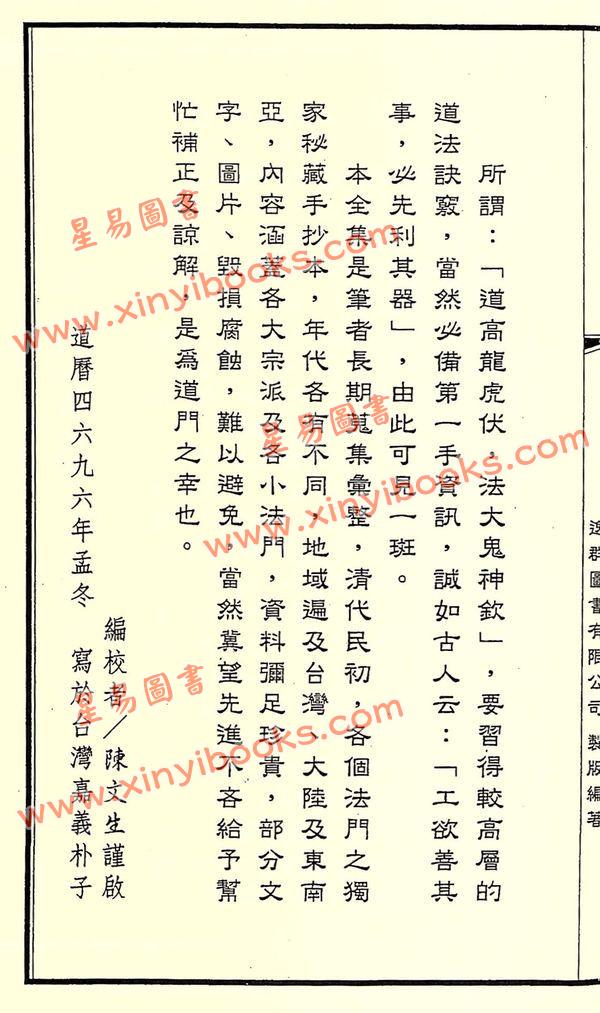 所謂：「道高龍虎伏，法大鬼神欽」，要習得較高層的
道法訣竅，當然必備第一手資訊，誠如古人云：「工欲善其
事，必先利其器」，由此可見一斑。
本全集是筆者長期蒐集彙整，清代民初，各個法門之獨
家秘藏手抄本，年代各有不同，地域遍及台灣、大陸及東南
亞，內容涵蓋各大宗派及各小法門，資料彌足珍貴，部分文
字、圖片、毀損腐蝕，難以避免，當然冀望先進不吝給予幫
忙補正及諒解，是為道門之幸也。
編校者／陳文生謹啟
道曆四六九六年孟冬 寫於台灣嘉義朴子
逸群圖書有限公司 製版編著
星易圖書
www.xinyibooks.com
星易圖書
www.xinyibooks.com
星易圖書
www.xinyibooks.com